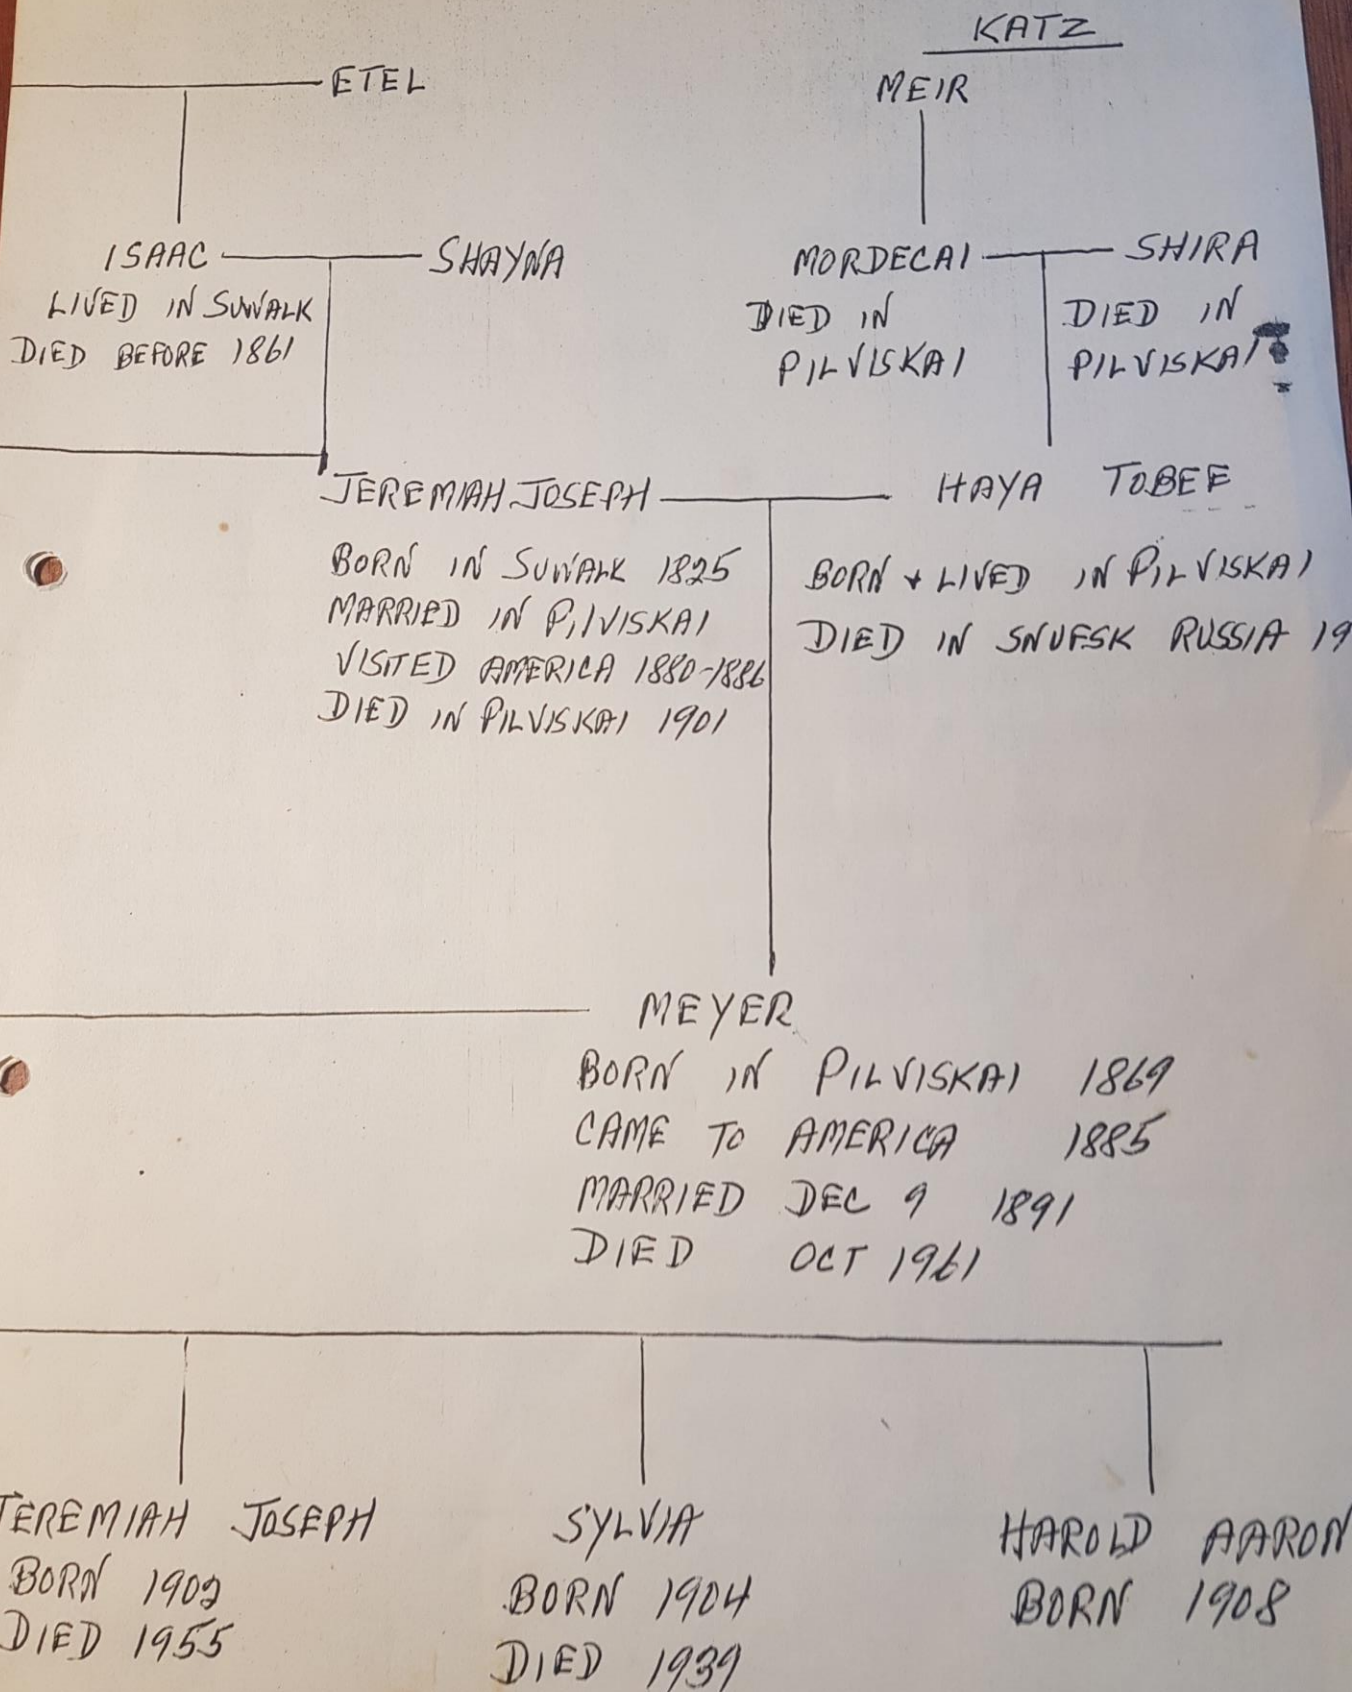 KATZ
ETEL
MEIR
ISAAC
LIVED IN SUWALK
DIED BEFORE 1861
SHAYNA
MORDECAI
DIED IN
PILVISKAI
SHIRA
DIED IN
PILVISKAI
JEREMIAH JOSEPH
BORN IN SUWALK 1825
MARRIED IN PILVISKAI
VISITED AMERICA 1880-1886
DIED IN PILVISKAI 1901
HAYA TOBEE
BORN + LIVED IN PILVISKAI
DIED IN SNUFSK RUSSIA 19
MEYER
BORN IN PILVISKAI 1869
CAME TO AMERICA 1885
MARRIED DEC 9 1891
DIED OCT 1961
JEREMIAH JOSEPH
BORN 1902
DIED 1955
SYLVIA
BORN 1904
DIED 1939
HAROLD AARON
BORN 1908